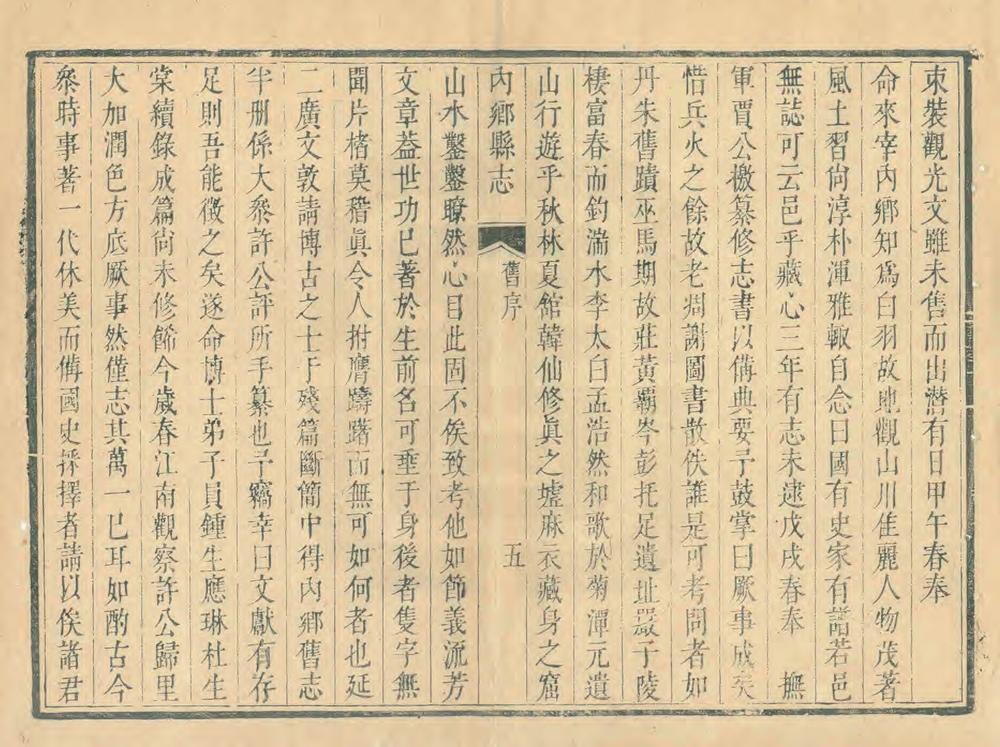 束裝觀光文雖未售而出潛有日甲午春奉
命來宰內鄉知爲白羽故地觀山川佳麗人物茂著
風土習尙淳朴渾雅輙自念曰國有史家有譜若邑
無誌可云邑乎藏心三年有志未逮戊戌春奉　撫
軍賈公檄纂修志書以備典要予鼓掌曰厥事成矣
惜兵火之餘故老凋謝圖書散佚誰是可考問者如
丹朱舊蹟巫馬期故莊黃霸岑彭托足遺址嚴子陵
棲富春而釣湍水李太白孟浩然和歌於菊潭元遺
山行遊乎秋林夏館韓仙修眞之墟麻衣藏身之窟
內鄉縣志　舊序　五
山水鑿鑿瞭然心目此固不俟致考他如節義流芳
文章葢世功已著於生前名可垂于身後者隻字無
聞片楮莫稽眞令人拊膺躊躇而無可如何者也延
二廣文敦請博古之士于殘篇斷簡中得內鄉舊志
半册係大叅許公評所手纂也予竊幸曰文獻有存
足則吾能徵之矣遂命博士弟子員鍾生應琳杜生
棠續錄成篇尙未修餙今歲春江南觀察許公歸里
大加潤色方底厥事然僅志其萬一已耳如酌古今
叅時事著一代休美而備國史採擇者請以俟諸君